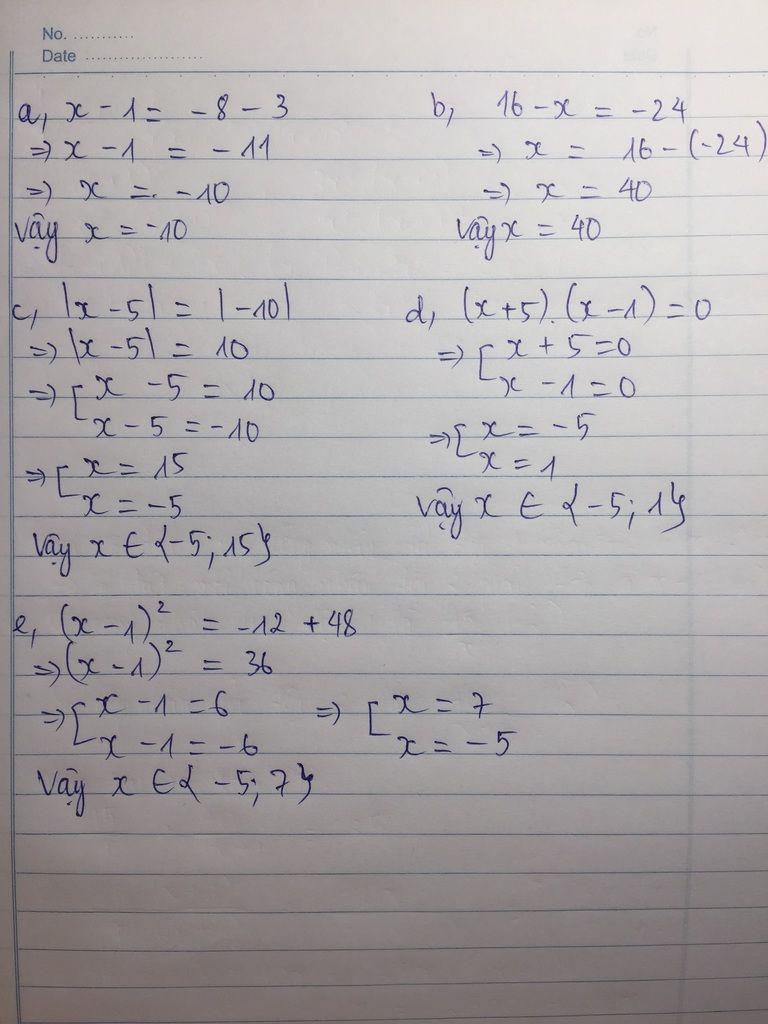 No. ...........
Date .....................
a, x - 1 = -8 - 3
=> x - 1 = -11
=> x = -10
Vậy x = -10
b, 16 - x = -24
=> x = 16 - (-24)
=> x = 40
Vậy x = 40
c, |x - 5| = |-10|
=> |x - 5| = 10
=> [ x - 5 = 10
x - 5 = -10
=> [ x = 15
x = -5
Vậy x ∈ {-5; 15}
d, (x + 5).(x - 1) = 0
=> [ x + 5 = 0
x - 1 = 0
=> [ x = -5
x = 1
Vậy x ∈ {-5; 1}
e, (x - 1)² = -12 + 48
=> (x - 1)² = 36
=> [ x - 1 = 6 => [ x = 7
x - 1 = -6 x = -5
Vậy x ∈ {-5; 7}